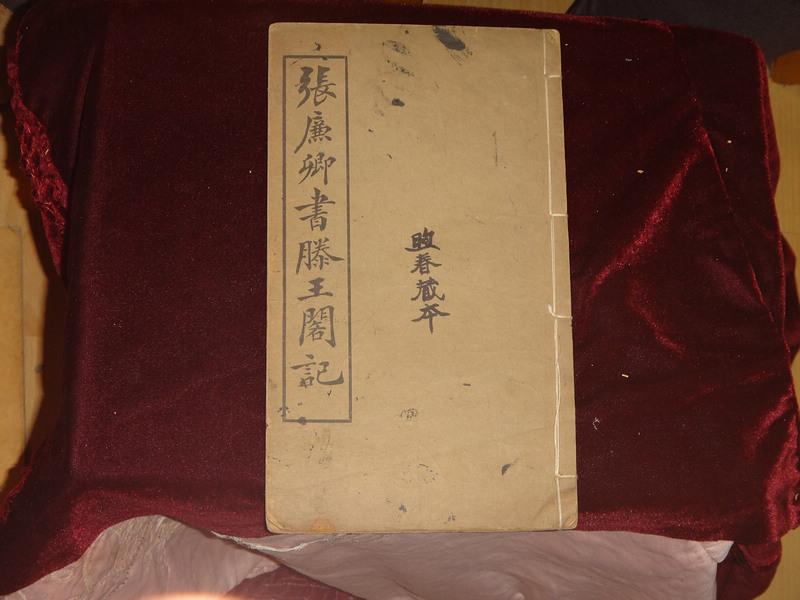 張廉卿書滕王閣記
煦春藏本